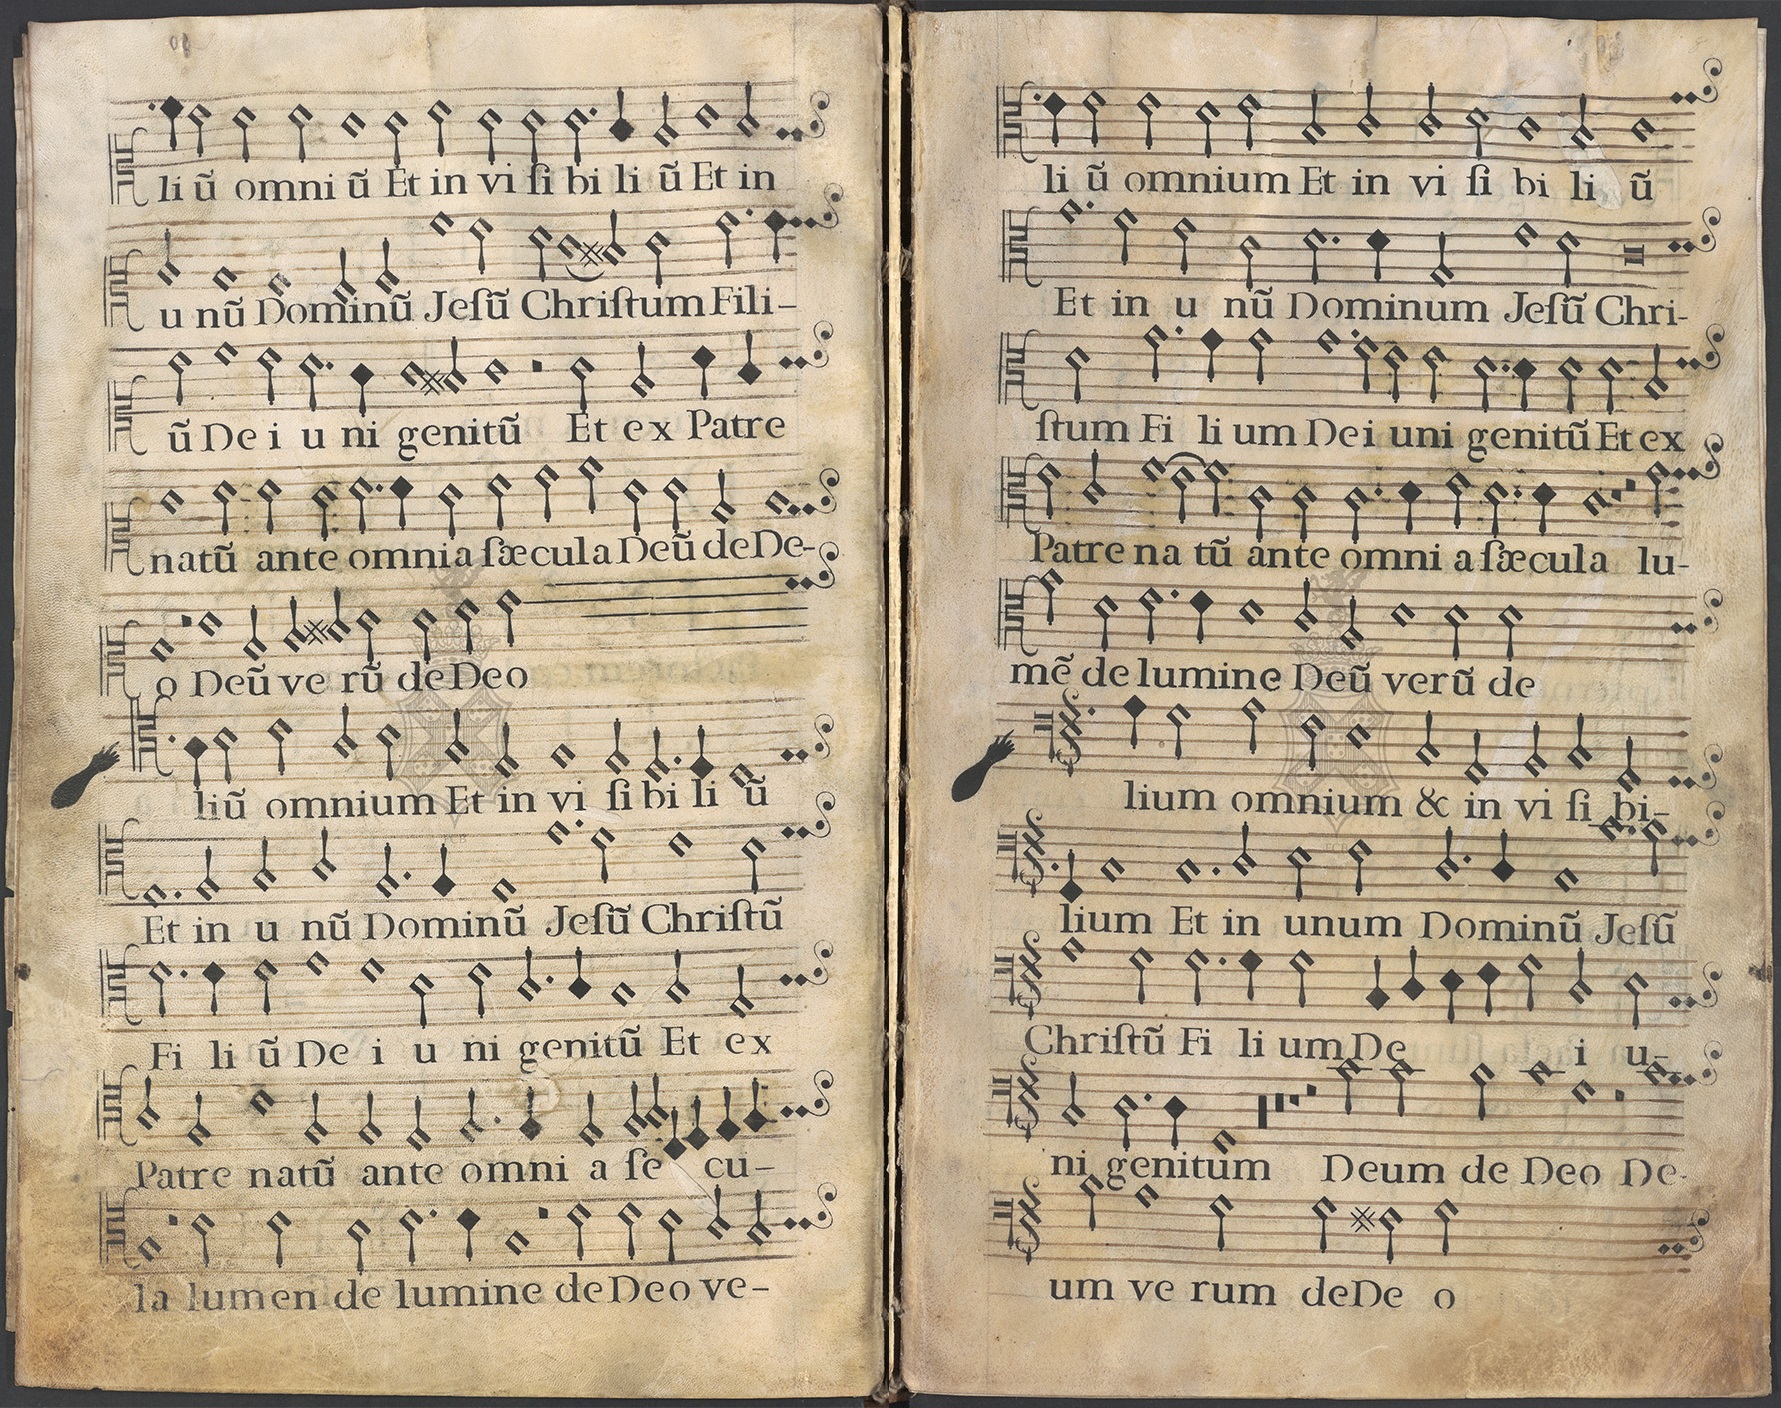 li ũ omni ũ Et in vi ſi bi li ũ Et in
u nũ Dominũ Jeſũ Chriſtum Fili-
ũ De i u ni genitũ Et ex Patre
natũ ante omnia ſæcula Deũ de De-
o Deũ ve rũ de Deo
liũ omnium Et in vi ſi bi li ũ
Et in u nũ Dominũ Jeſũ Chriſtũ
Fi li ũ De i u ni genitũ Et ex
Patre natũ ante omni a ſe cu-
la lumen de lumine de Deo ve-
li ũ omnium Et in vi ſi bi li ũ
Et in u nũ Dominum Jeſũ Chri-
ſtum Fi li um Dei uni genitũ Et ex
Patre na tũ ante omni a ſæcula lu-
mẽ de lumine Deũ verũ de
lium omnium & in vi ſi bi-
lium Et in unum Dominũ Jeſũ
Chriſtũ Fi li um De i u-
ni genitum Deum de Deo De-
um ve rum de De o